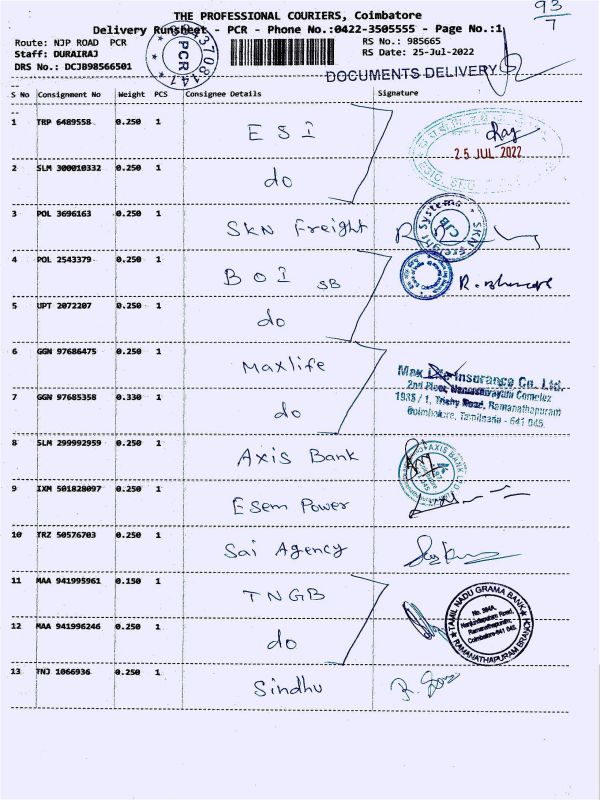 93
7
THE PROFESSIONAL COURIERS, Coimbatore
Delivery Runsheet - PCR - Phone No.:0422-3505555 - Page No.:1
Route: NJP ROAD PCR
RS No.: 985665
Staff: DURAIRAJ
RS Date: 25-Jul-2022
DRS No.: DCJB98566501
PCR
DOCUMENTS DELIVERY
S No Consignment No Weight PCS Consignee Details Signature
1 TRP 6489558 0.250 1 ESI
25 JUL 2022
2 SLM 300010332 0.250 1 do
3 POL 3696163 0.250 1 SKN Freight
SKN Freight Systems
CJB
4 POL 2543379 0.250 1 BOI SB
5 UPT 2072207 0.250 1 do
6 GGN 97686475 0.250 1 Maxlife
Max Life Insurance Co. Ltd.
2nd Floor,
1938 / 1, Trichy Road, Ramanathapuram
Coimbatore, Tamilnadu - 641 045.
7 GGN 97685358 0.330 1 do
8 SLM 299992959 0.250 1 Axis Bank
AXIS BANK LTD
9 IXM 501828097 0.250 1 Esem Power
10 TRZ 50576703 0.250 1 Sai Agency
11 MAA 941995961 0.150 1 TNGB
TAMIL NADU GRAMA BANK
No. 394A,
Nanjundapuram Road,
Ramanathapuram,
Coimbatore-641 045.
RAMANATHAPURAM BRANCH
12 MAA 941996246 0.250 1 do
13 TNJ 1066936 0.250 1 Sindhu